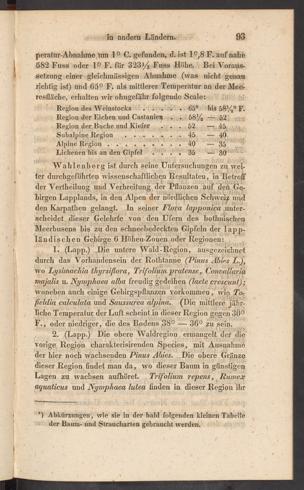 in andern Ländern. 93
peratur-Abnahme um 1° C. gefunden, d. ist 1°,8 F. auf nahe
582 Fuss oder 1° F. für 323½ Fuss Höhe. Bei Voraus-
setzung einer gleichmässigen Abnahme (was nicht genau
richtig ist) und 65° F. als mittlerer Temperatur an der Mee-
resfläche, erhalten wir ohngefähr folgende Scale:
Region des Weinstocks . . . . . . 65° bis 58½° F.
Region der Eichen und Castanien . . . 58½ — 52
Region der Buche und Kiefer . . . . 52 — 45
Subalpine Region . . . . . . . 45 — 40
Alpine Region . . . . . . . . 40 — 35
Lichenen bis an den Gipfel . . . . . 35 — 30
Wahlenberg ist durch seine Untersuchungen zu wei-
ter durchgeführten wissenschaftlichen Resultaten, in Betreff
der Vertheilung und Verbreitung der Pflanzen auf den Ge-
birgen Lapplands, in den Alpen der nördlichen Schweiz und
den Karpathen gelangt. In seiner Flora lapponica unter-
scheidet dieser Gelehrte von den Ufern des bothnischen
Meerbusens bis zu den schneebedeckten Gipfeln der lapp-
ländischen Gebirge 6 Höhen-Zonen oder Regionen:
1. (Lapp.) Die untere Wald-Region, ausgezeichnet
durch das Vorhandensein der Rothtanne (Pinus Abies L.),
wo Lysimachia thyrsiflora, Trifolium pratense, Convallaria
majalis u. Nymphaea alba freudig gedeihen (laete crescunt);
woneben auch einige Gebirgspflanzen vorkommen, wie To-
fieldia calculata und Saussurea alpina. (Die mittlere jähr-
liche Temperatur der Luft scheint in dieser Region gegen 30°
F., oder niedriger, die des Bodens 38° — 36° zu sein.
2. (Lapp.) Die obere Waldregion ermangelt der die
vorige Region charakterisirenden Species, mit Ausnahme
der hier noch wachsenden Pinus Abies. Die obere Gränze
dieser Region findet man da, wo dieser Baum in günstigen
Lagen zu wachsen aufhöret. Trifolium repens, Rumex
aquaticus und Nymphaea lutea finden in dieser Region ihr
*) Abkürzungen, wie sie in der bald folgenden kleinen Tabelle
der Baum- und Straucharten gebraucht werden.